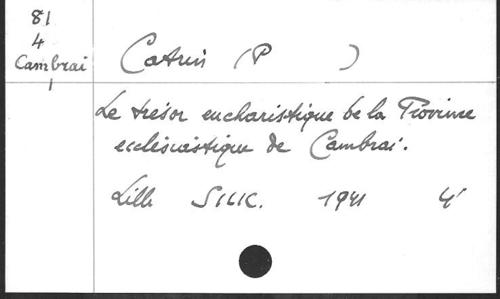 81
4
Cambrai
1
Catrin (P )
Le trésor eucharistique de la Province
ecclésiastique de Cambrai.
Lille SILIC. 1941 4°